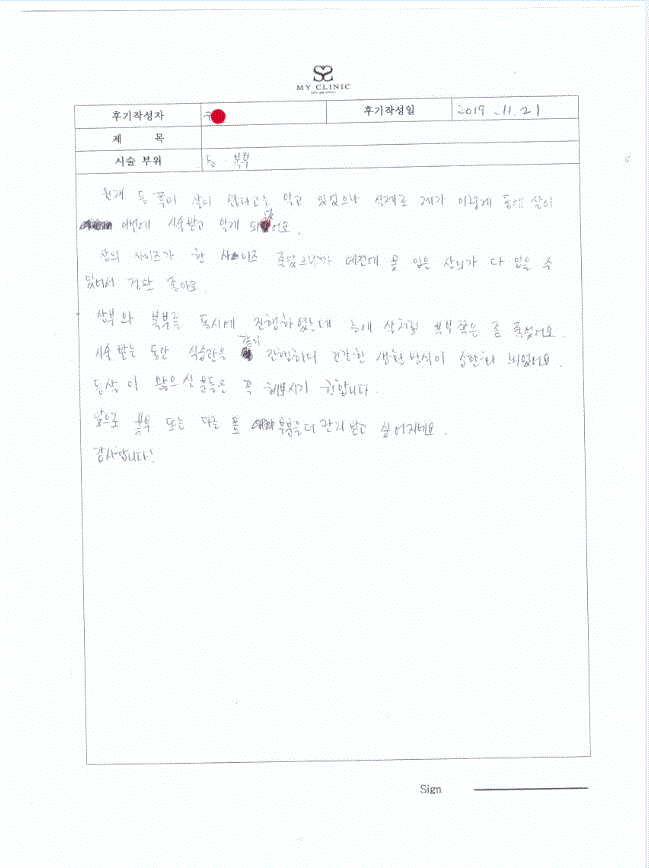 MY CLINIC
후기작성자 구 후기작성일 2019. 11. 21
제 목
시술 부위 등. 복부
원래 등 쪽이 살이 찐다고는 알고 있었으나 실제로 제가 이렇게 등에 살이
이번에 시술받고 알게 되었어요.
상의 사이즈가 한 사이즈 줄었으니까 예전에 못 입은 상의가 다 입을 수
있어서 정말 좋아요.
상부와 복부를 동시에 진행하였는데 등에 살처럼 복부 쪽은 좀 줄었어요.
시술 받는 동안 식습관을 같이 진행하며 건강한 생활 방식이 습관화 되었어요.
등살이 많으신 분들은 꼭 해보시기 권합니다.
앞으로 복부 또는 다른 쪽 부분을 더 관리 받고 싶어지네요.
감사합니다!
Sign